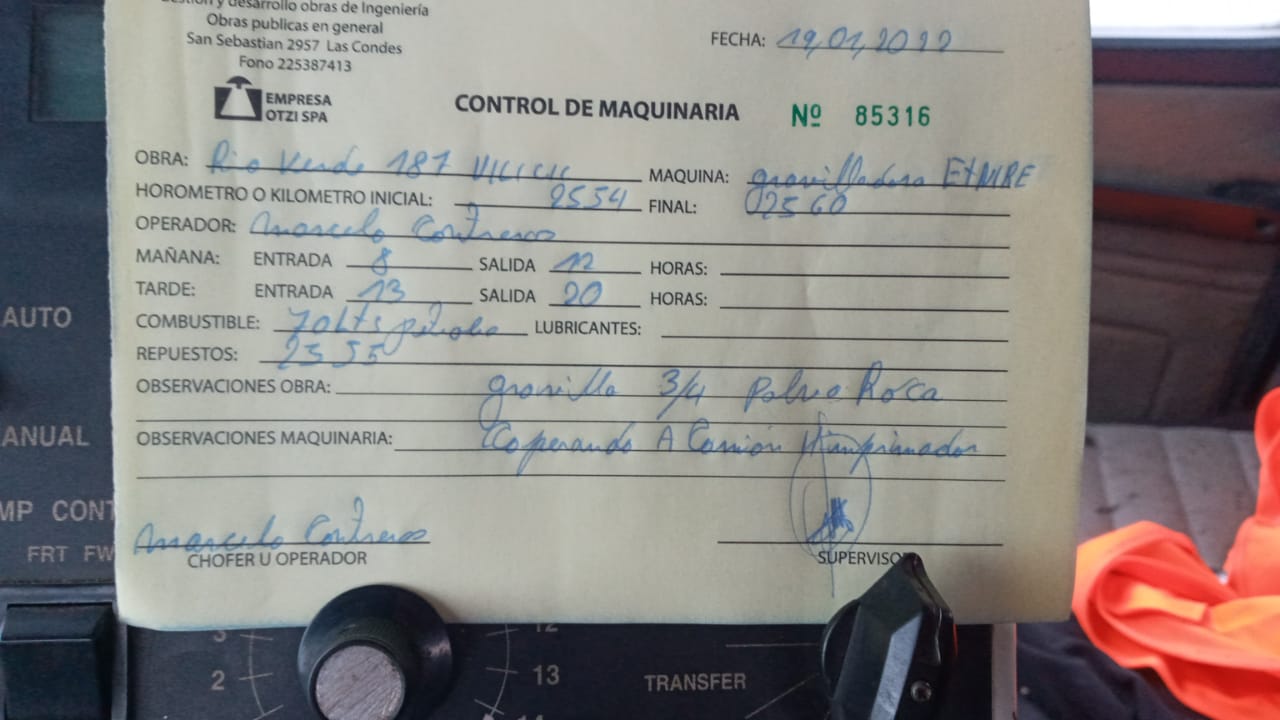 Gestión y desarrollo obras de Ingeniería
Obras publicas en general
San Sebastian 2957 Las Condes
Fono 225387413
FECHA: 19,01,2022
EMPRESA
OTZI SPA
CONTROL DE MAQUINARIA Nº 85316
OBRA: Rio Verde 187 MAQUINA: gravilladora ETNIRE
HOROMETRO O KILOMETRO INICIAL: 2554 FINAL: 02560
OPERADOR: Marcelo Contreras
MAÑANA: ENTRADA 8 SALIDA 12 HORAS:
TARDE: ENTRADA 13 SALIDA 20 HORAS:
COMBUSTIBLE: 70 Lts petroleo LUBRICANTES:
REPUESTOS: 2555
OBSERVACIONES OBRA: gravilla 3/4 Polvo Roca
OBSERVACIONES MAQUINARIA: Coperando A Camión Himprimador
Marcelo Contreras
CHOFER U OPERADOR SUPERVISOR
AUTO
ANUAL
MP CONT
FRT FW
3
2
12
13
TRANSFER